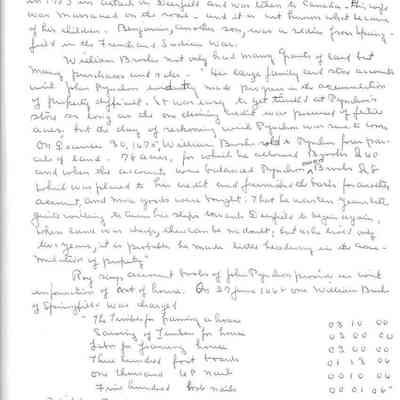 in 1703 in attack in Deerfield and was taken to Canada. His wife
was murdered on the road - and it is not known what became
of his children. Benjamin, another son, was a soldier from Spring-
field in the French and Indian War.
William Brooks not only had many grants of land but
many purchases and sales - "His large family and store accounts
with John Pynchon made progress in the accumulation
of property difficult. It was easy to get trusted at Pynchon's
store so long as the one desiring credit was possessed of fertile
acres, but the day of reckoning with Pynchon was sure to come.
On December 30, 1675, William Brooks sold to Pynchon four par-
cels of land, 78 acres, for which he allowed Brooks £40
and when the accounts were balanced Pynchon Brooks £8
which was placed to his credit and furnished the basis for another
account, and more goods were bought: That he was ten years later
quite willing to turn his steps toward Deerfield to begin again,
where land was cheap, there can be no doubt; but as he lived only
two years, it is probable he made little headway in the accu-
mulation of property"
Roy says account books of John Pynchon provide us with
information of cost of house. On 27 June 1662 one William Brooks
of Springfield was charged
"The Timber for framing a house 03 10 00
Sawing of Timber for house 03 00 00
Labor for framing house 03 00 00
Three hundred foot boards 01 13 06
One thousand 6P nails 00 10 06
Five hundred hob nails 00 01 06"